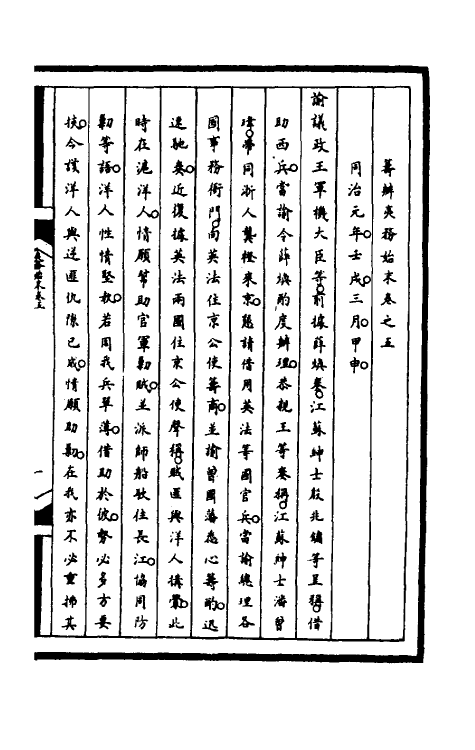 籌辦夷務始末卷之五
同治元年壬戌三月甲申
諭議政王軍機大臣等前據薛煥奏江蘇紳士殷兆鏞等呈稱借
助西兵當諭令薛煥酌度辦理恭親王等奏稱江蘇紳士潘曾
瑋帶同浙人龔橙來京懇請借用英法等國官兵當諭總理各
國事務衙門向英法住京公使籌商並諭曾國藩悉心籌酌迅
速馳奏近復據英法兩國住京公使聲稱賊匪與洋人搆釁此
時在滬洋人情願幫助官軍勦賊並派師船駛往長江協同防
勦等語洋人性情堅執若因我兵單薄借助於彼勢必多方要
挾今該洋人與逆匪仇隙已成情願助勦在我亦不必重拂其